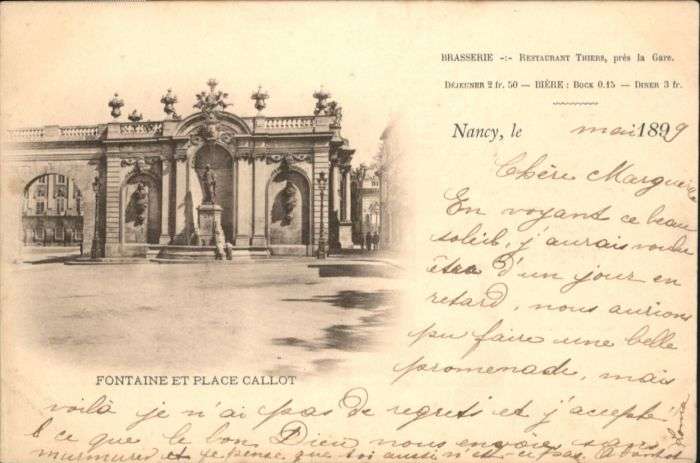 BRASSERIE -:- RESTAURANT THIERS, près la Gare.
DÉJEUNER 2 fr. 50 — BIÈRE : BOCK 0.15 — DINER 3 fr.
Nancy, le mai 1899
Chère Marguerite
En voyant ce beau
soleil, j'aurais voulu
être d'un jour en
retard, nous aurions
pu faire une belle
promenade, mais
FONTAINE ET PLACE CALLOT
voilà je n'ai pas de regrets et j'accepte
ce que le bon Dieu nous envoie sans
murmurer et je pense que toi aussi n'est-ce pas. A bientôt